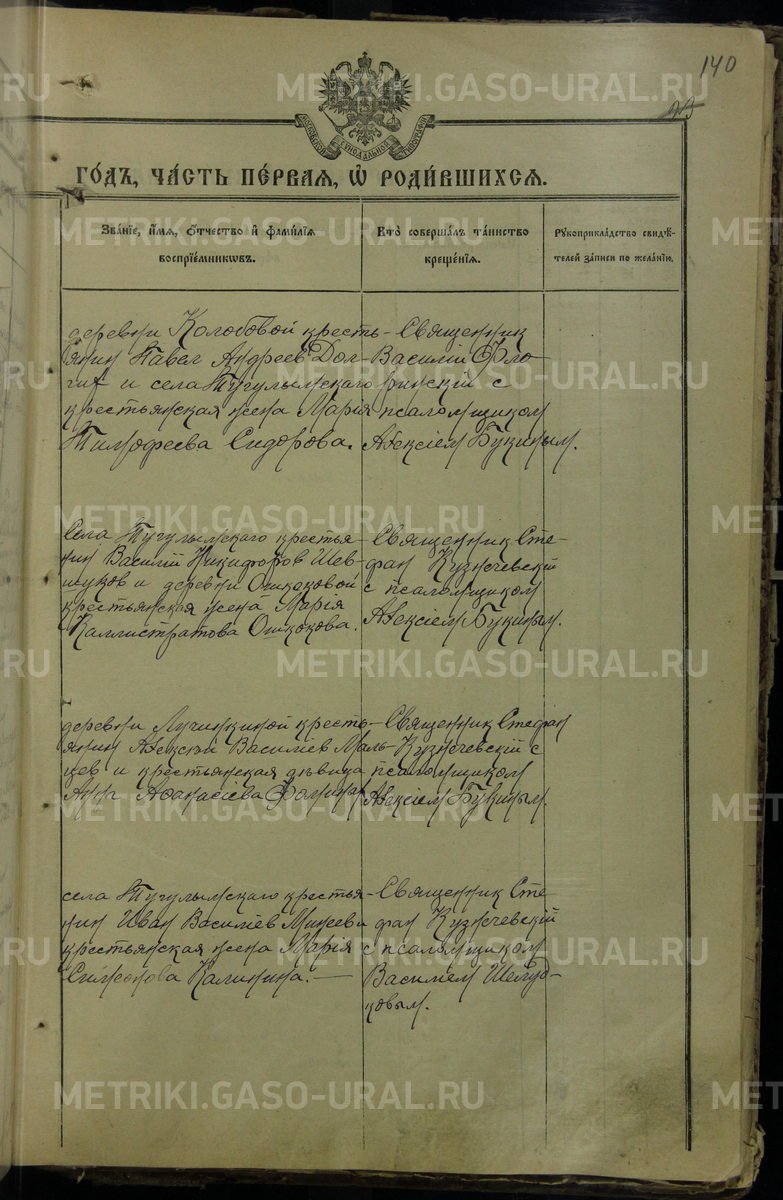 140
МОСКОВСКОЙ СѴНОДАЛЬНОЙ ТѴПОГРАФІИ
ГОДЪ, ЧАСТЬ ПЕРВАЯ, Ѡ РОДИВШИХСЯ.
Званіе, имя, отчество и фамилія воспріемниковъ.
Кто совершалъ таинство крещенія.
Рукоприкладство свидѣтелей записи по желанію.
деревни Колобовой кресть-
янин Павел Андреев Дол-
гих и села Тугулымскаго
крестьянская жена Марія
Тимофеева Сидорова.
Священник
Василій Фло-
ринскій с
псаломщиком
Алексіем Букиным.
Села Тугулымскаго крестья-
нин Василій Никифоров Шев-
туков и деревни Ошкоковой
крестьянская жена Марія
Каллистратова Ошкокова.
Священник Сте-
фан Кузнечевскій
с псаломщиком
Алексіем Букиным.
деревни Лучинкиной кресть-
янин Алексѣй Василіев Маль-
цев и крестьянская дѣвица
Анна Афанасіева Фомина
Священник Стефан
Кузнечевскій с
псаломщиком
Алексіем Букиным.
села Тугулымскаго крестья-
нин Иван Василіев Минеев и
крестьянская жена Марія
Симеонова Калинина. —
Священник Сте-
фан Кузнечевскій
с псаломщиком
Василием Шелуд-
ковым.
METRIKI.GASO-URAL.RU